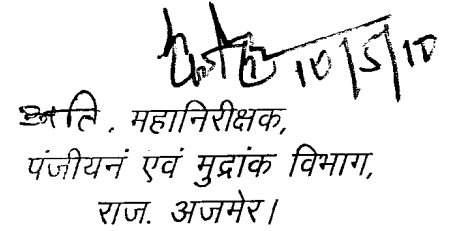 10/5/10
अति. महानिरीक्षक,
पंजीयनं एवं मुद्रांक विभाग,
राज. अजमेर।